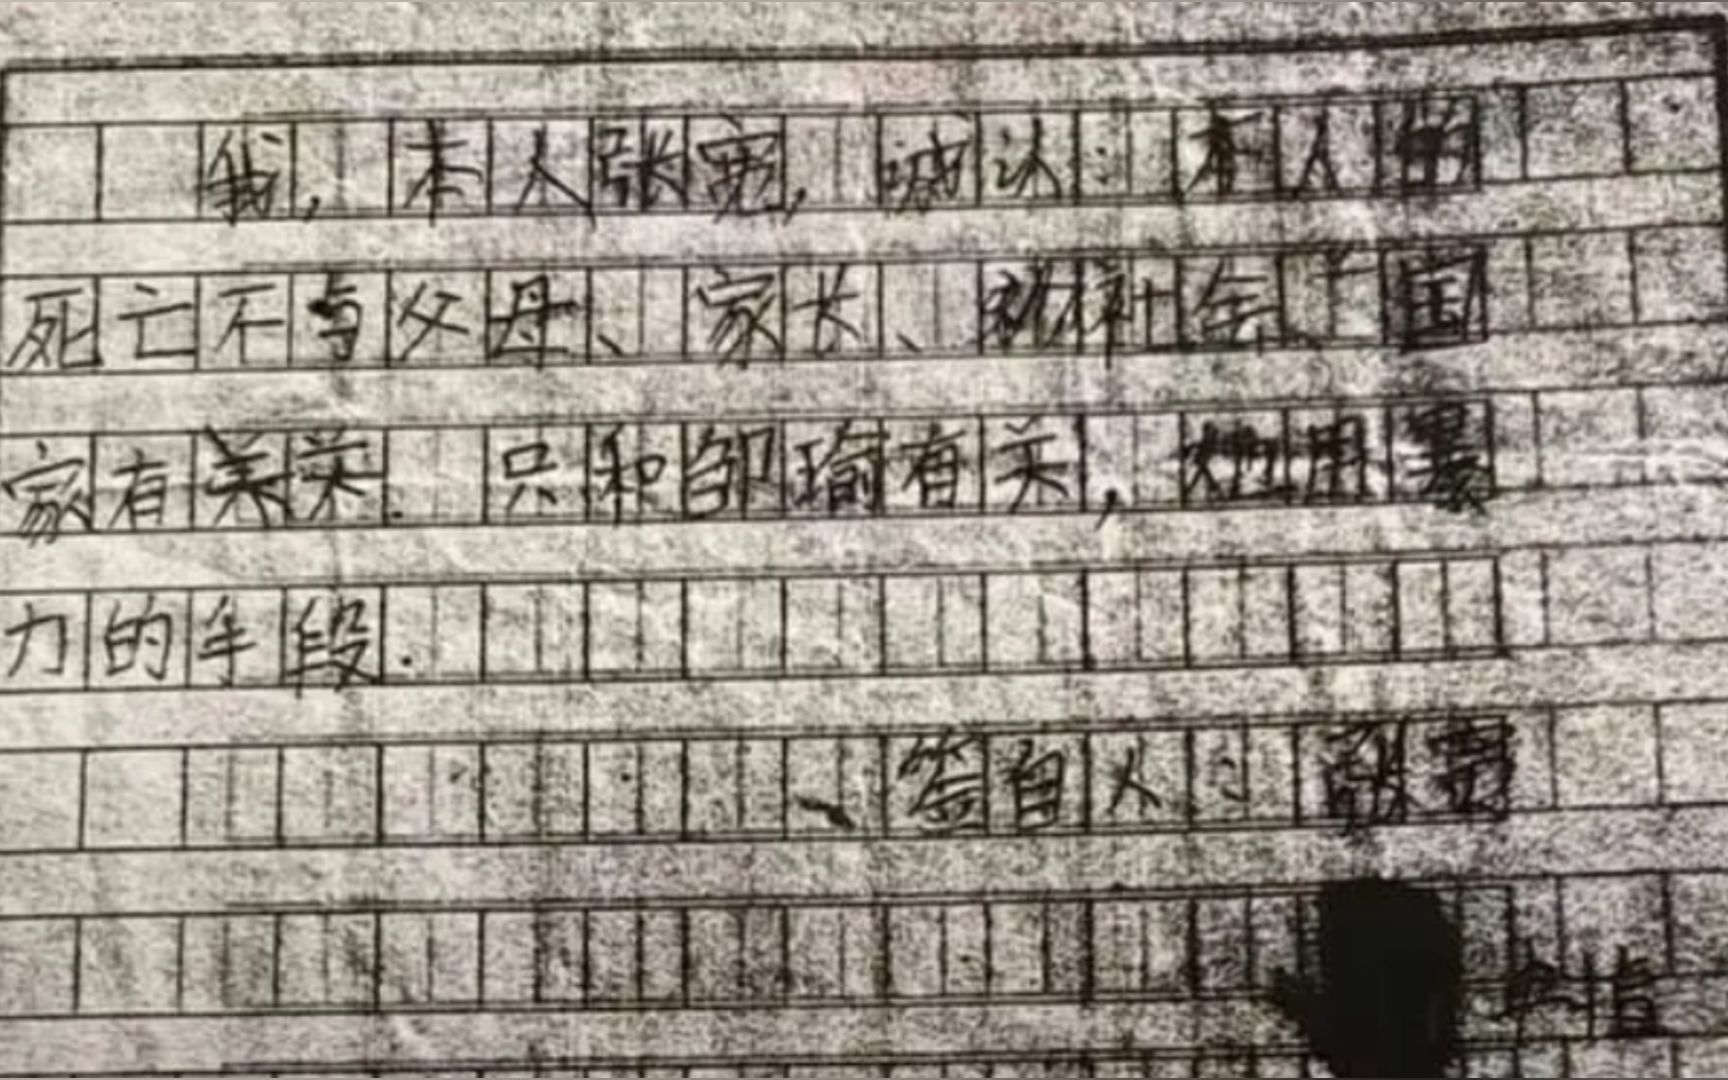 我,本人张宽,诚认:本人的
死亡不与父母、家长、社会、国
家有关. 只和邹瑜有关,用暴
力的手段.
签自人:张宽
食指